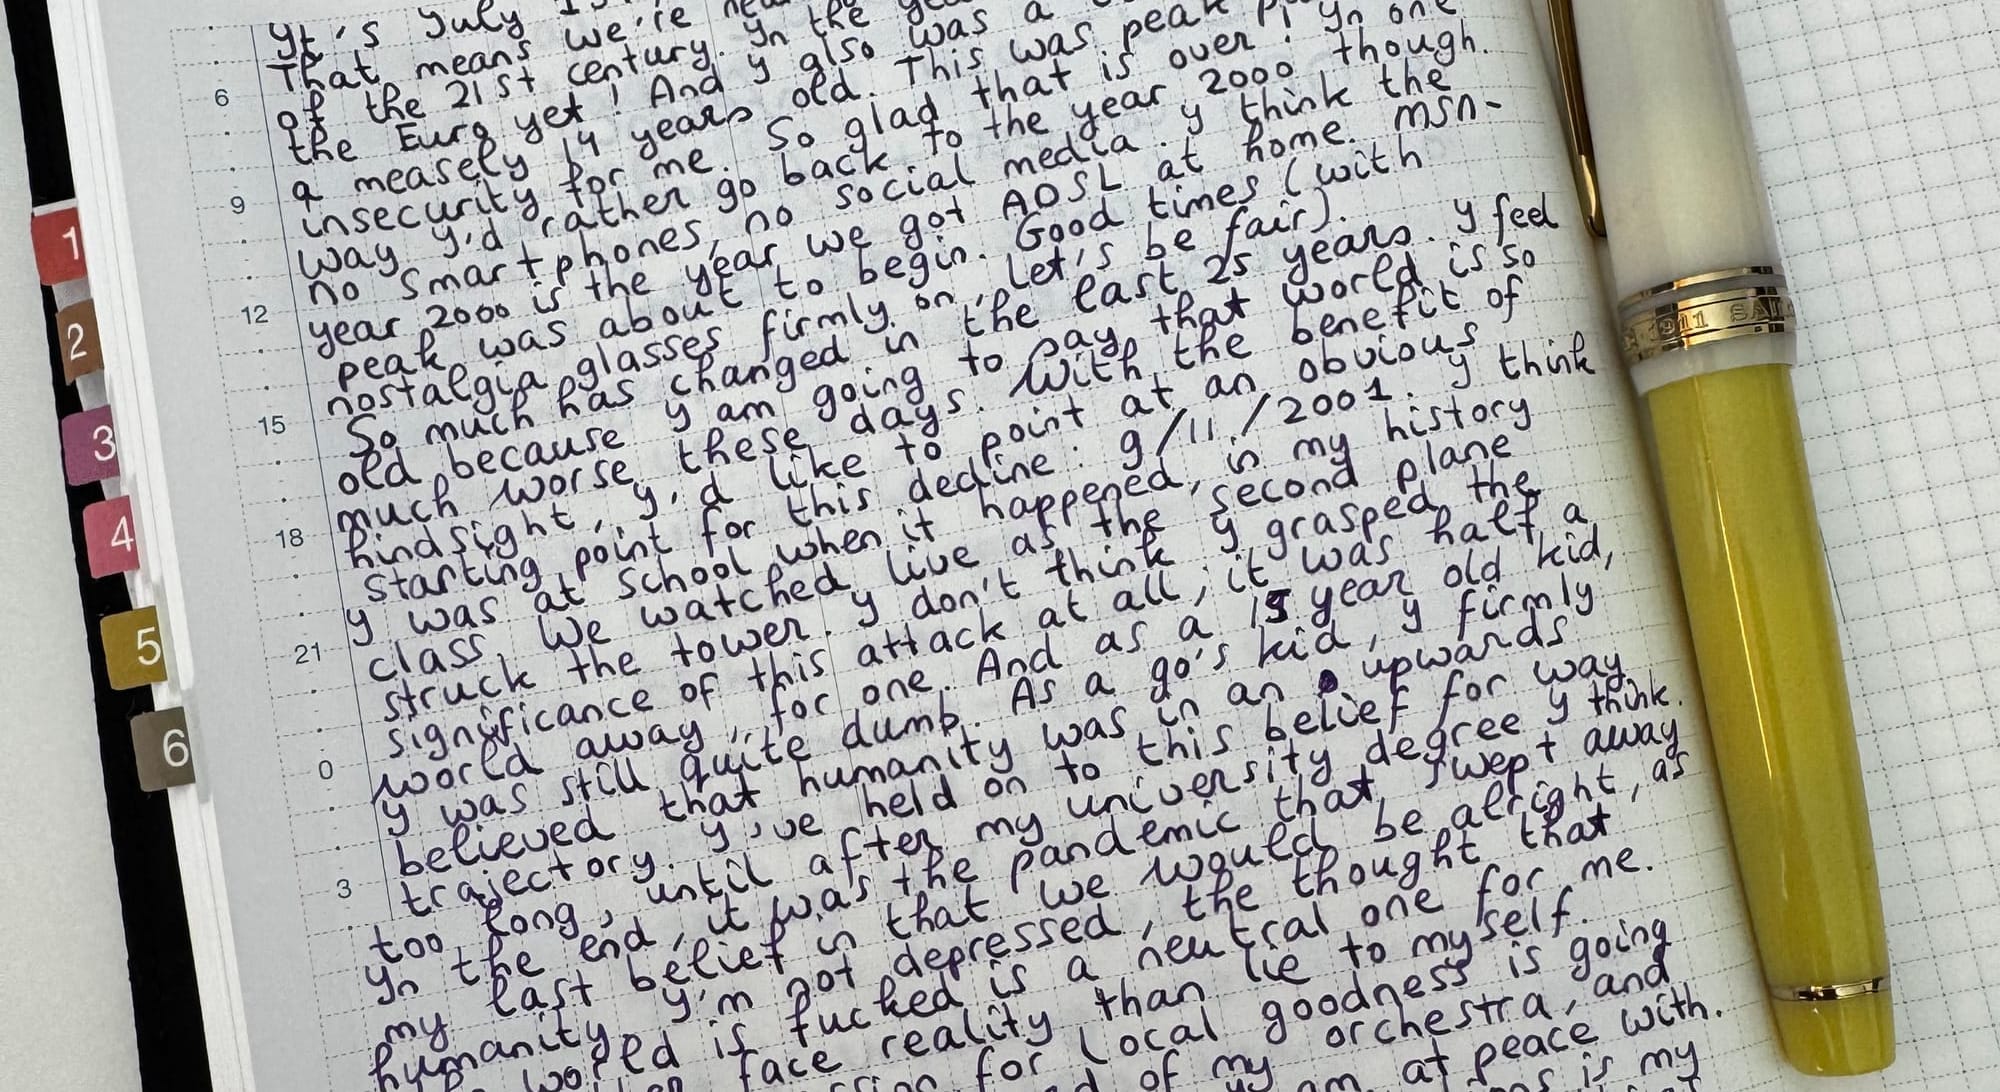 It's July
That means we're
of the 21st century. In the
the Euro yet! And I also was a
a measely 14 years old. This was peak
insecurity for me. So glad that is over! In one
way I'd rather go back to the year 2000 though.
no smartphones, no social media. I think the
year 2000 is the year we got ADSL at home. msn-
peak was about to begin. Good times (with
nostalgia glasses firmly on, let's be fair).
So much has changed in the last 25 years. I feel
old because I am going to say that world is so
much worse these days. With the benefit of
hindsight, I'd like to point at an obvious
starting point for this decline: 9/11/2001. I think
I was at school when it happened, in my history
class. We watched live as the second plane
struck the tower. I don't think I grasped the
significance of this attack at all, it was half a
world away, for one. And as a 15 year old kid,
I was still quite dumb. As a 90's kid, I firmly
believed that humanity was in an upwards
trajectory. I've held on to this belief for way
too long, until after my university degree I think.
In the end, it was the pandemic that swept away
my last belief in that we would be alright, as
humanity. I'm not depressed, the thought that
world is fucked is a neutral one for me.
face reality than lie to myself.
for local goodness is going
of my orchestra, and
am at peace with.
is my
6
9
12
15
18
21
0
3
1
2
3
4
5
6
1911 SAIL